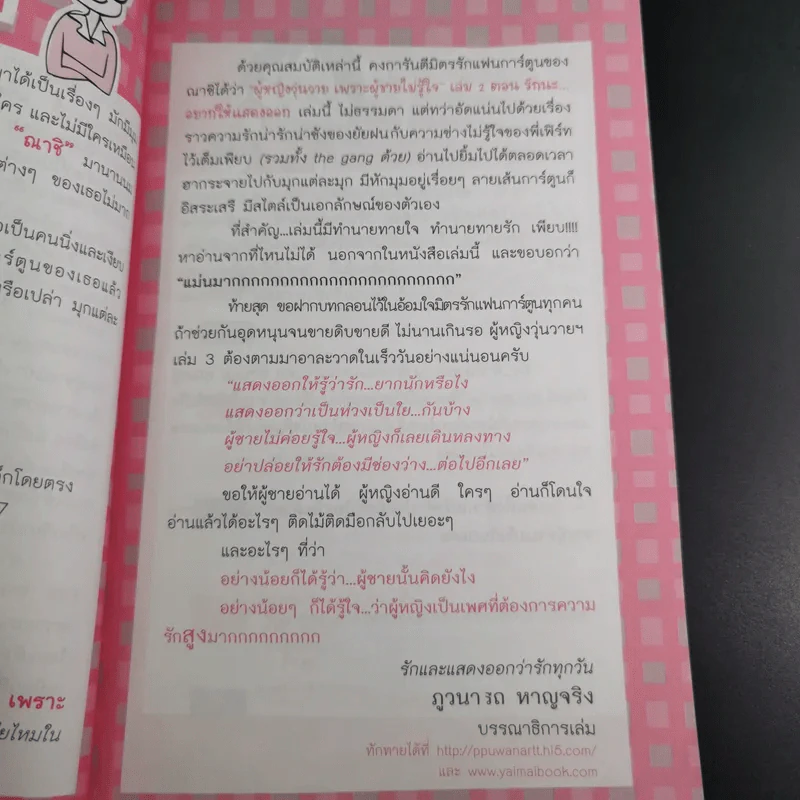 าได้เป็นเรื่องๆ มักมีมุม
ใคร และไม่มีใครเหมือน
"ณาชิ" มานานนม
ต่างๆ ของเธอไม่มาก
เป็นคนนิ่งและเงียบ
ร์ตูนของเธอแล้ว
รือเปล่า มุกแต่ละ
ด็กโดยตรง
7
เพราะ
ด้วยคุณสมบัติเหล่านี้ คงการันตีมิตรรักแฟนการ์ตูนของ
ณาชิได้ว่า "ผู้หญิงวุ่นวาย เพราะผู้ชายไม่รู้ใจ" เล่ม 2 ตอน รักนะ...
อยากให้แสดงออก เล่มนี้ ไม่ธรรมดา แต่ทว่าอัดแน่นไปด้วยเรื่อง
ราวความรักน่ารักน่าชังของยัยฝนกับความช่างไม่รู้ใจของพี่เฟิร์ท
ไว้เต็มเพียบ (รวมทั้ง the gang ด้วย) อ่านไปยิ้มไปได้ตลอดเวลา
ฮากระจายไปกับมุกแต่ละมุก มีหักมุมอยู่เรื่อยๆ ลายเส้นการ์ตูนก็
อิสระเสรี มีสไตล์เป็นเอกลักษณ์ของตัวเอง
ที่สำคัญ...เล่มนี้มีทำนายทายใจ ทำนายทายรัก เพียบ!!!!
หาอ่านจากที่ไหนไม่ได้ นอกจากในหนังสือเล่มนี้ และขอบอกว่า
"แม่นมากกกกกกกกกกกกกกกกกกกกกกกก"
ท้ายสุด ขอฝากบทกลอนไว้ในอ้อมใจมิตรรักแฟนการ์ตูนทุกคน
ถ้าช่วยกันอุดหนุนจนขายดิบขายดี ไม่นานเกินรอ ผู้หญิงวุ่นวายฯ
เล่ม 3 ต้องตามมาอาละวาดในเร็ววันอย่างแน่นอนครับ
"แสดงออกให้รู้ว่ารัก...ยากนักหรือไง
แสดงออกว่าเป็นห่วงเป็นใย...กันบ้าง
ผู้ชายไม่ค่อยรู้ใจ...ผู้หญิงก็เลยเดินหลงทาง
อย่าปล่อยให้รักต้องมีช่องว่าง...ต่อไปอีกเลย"
ขอให้ผู้ชายอ่านได้ ผู้หญิงอ่านดี ใครๆ อ่านก็โดนใจ
อ่านแล้วได้อะไรๆ ติดไม้ติดมือกลับไปเยอะๆ
และอะไรๆ ที่ว่า
อย่างน้อยก็ได้รู้ว่า...ผู้ชายนั้นคิดยังไง
อย่างน้อยๆ ก็ได้รู้ใจ...ว่าผู้หญิงเป็นเพศที่ต้องการความ
รักสูงมากกกกกกกกกก
รักและแสดงออกว่ารักทุกวัน
ภูวนารถ หาญจริง
บรรณาธิการเล่ม
ทักทายได้ที่ http://ppuwanartt.hi5.com/
และ www.yaimaibook.com